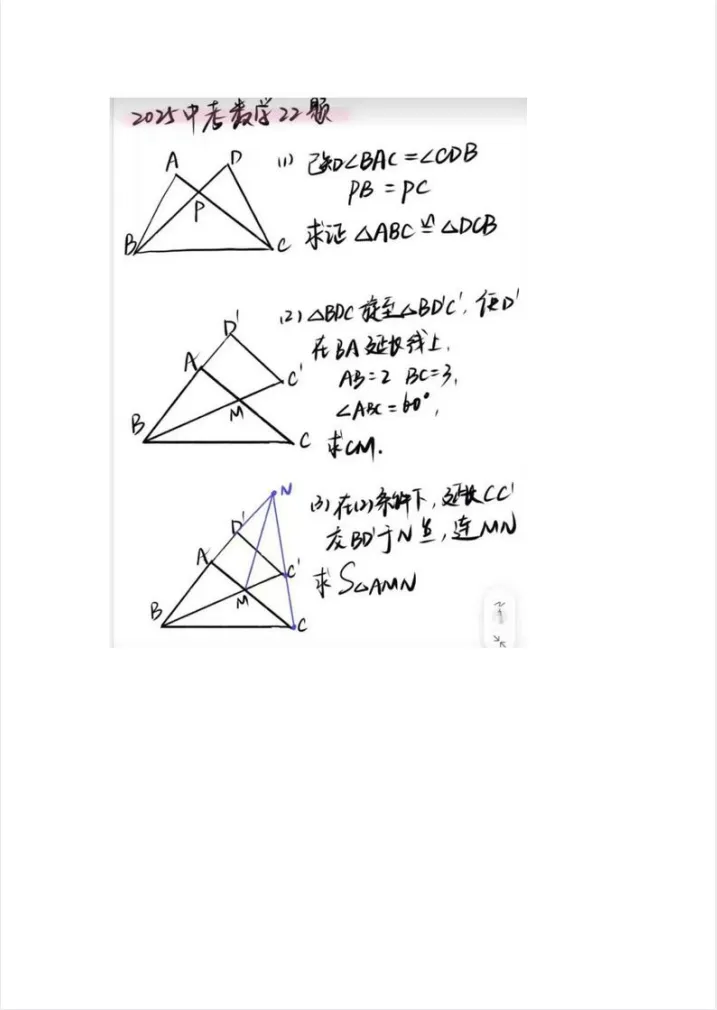 2025中考数学22题
A
D
P
B
C
(1) 已知∠BAC=∠CDB
PB=PC
求证△ABC≌△DCB
(2) △BDC旋至△BD'C',使D'
在BA延长线上,
AB=2 BC=3,
∠ABC=60°,
求CM.
D'
A
C'
M
B
C
(3) 在(2)条件下,延长CC'
交BD'于N点,连MN
求S△AMN
N
D'
A
C'
M
B
C